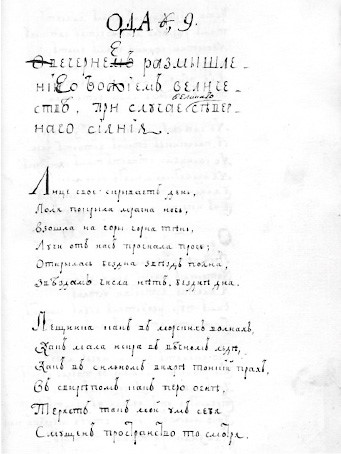 ОДА 9.
вечернЕ размышле-
ніЕ о Божіемъ величе-
ствѣ, при случаѣ великаго сѣвер-
наго сіянія.
Лице свое скрываетъ день,
Поля покрыла мрачна ночь,
Взошла на горы чорна тѣнь,
Лучи отъ насъ прогнала прочь;
Открылась бездна звѣздъ полна,
Звѣздамъ числа нѣтъ, безднѣ дна.
Пещинка какъ въ морскихъ волнахъ,
Какъ мала искра въ вѣчномъ льдѣ,
Какъ въ сильномъ вихрѣ тонкій прахъ,
Въ свирѣпомъ какъ перо огнѣ,
Теряетъ такъ мой умъ себя
Смущенъ пространство то смотря.